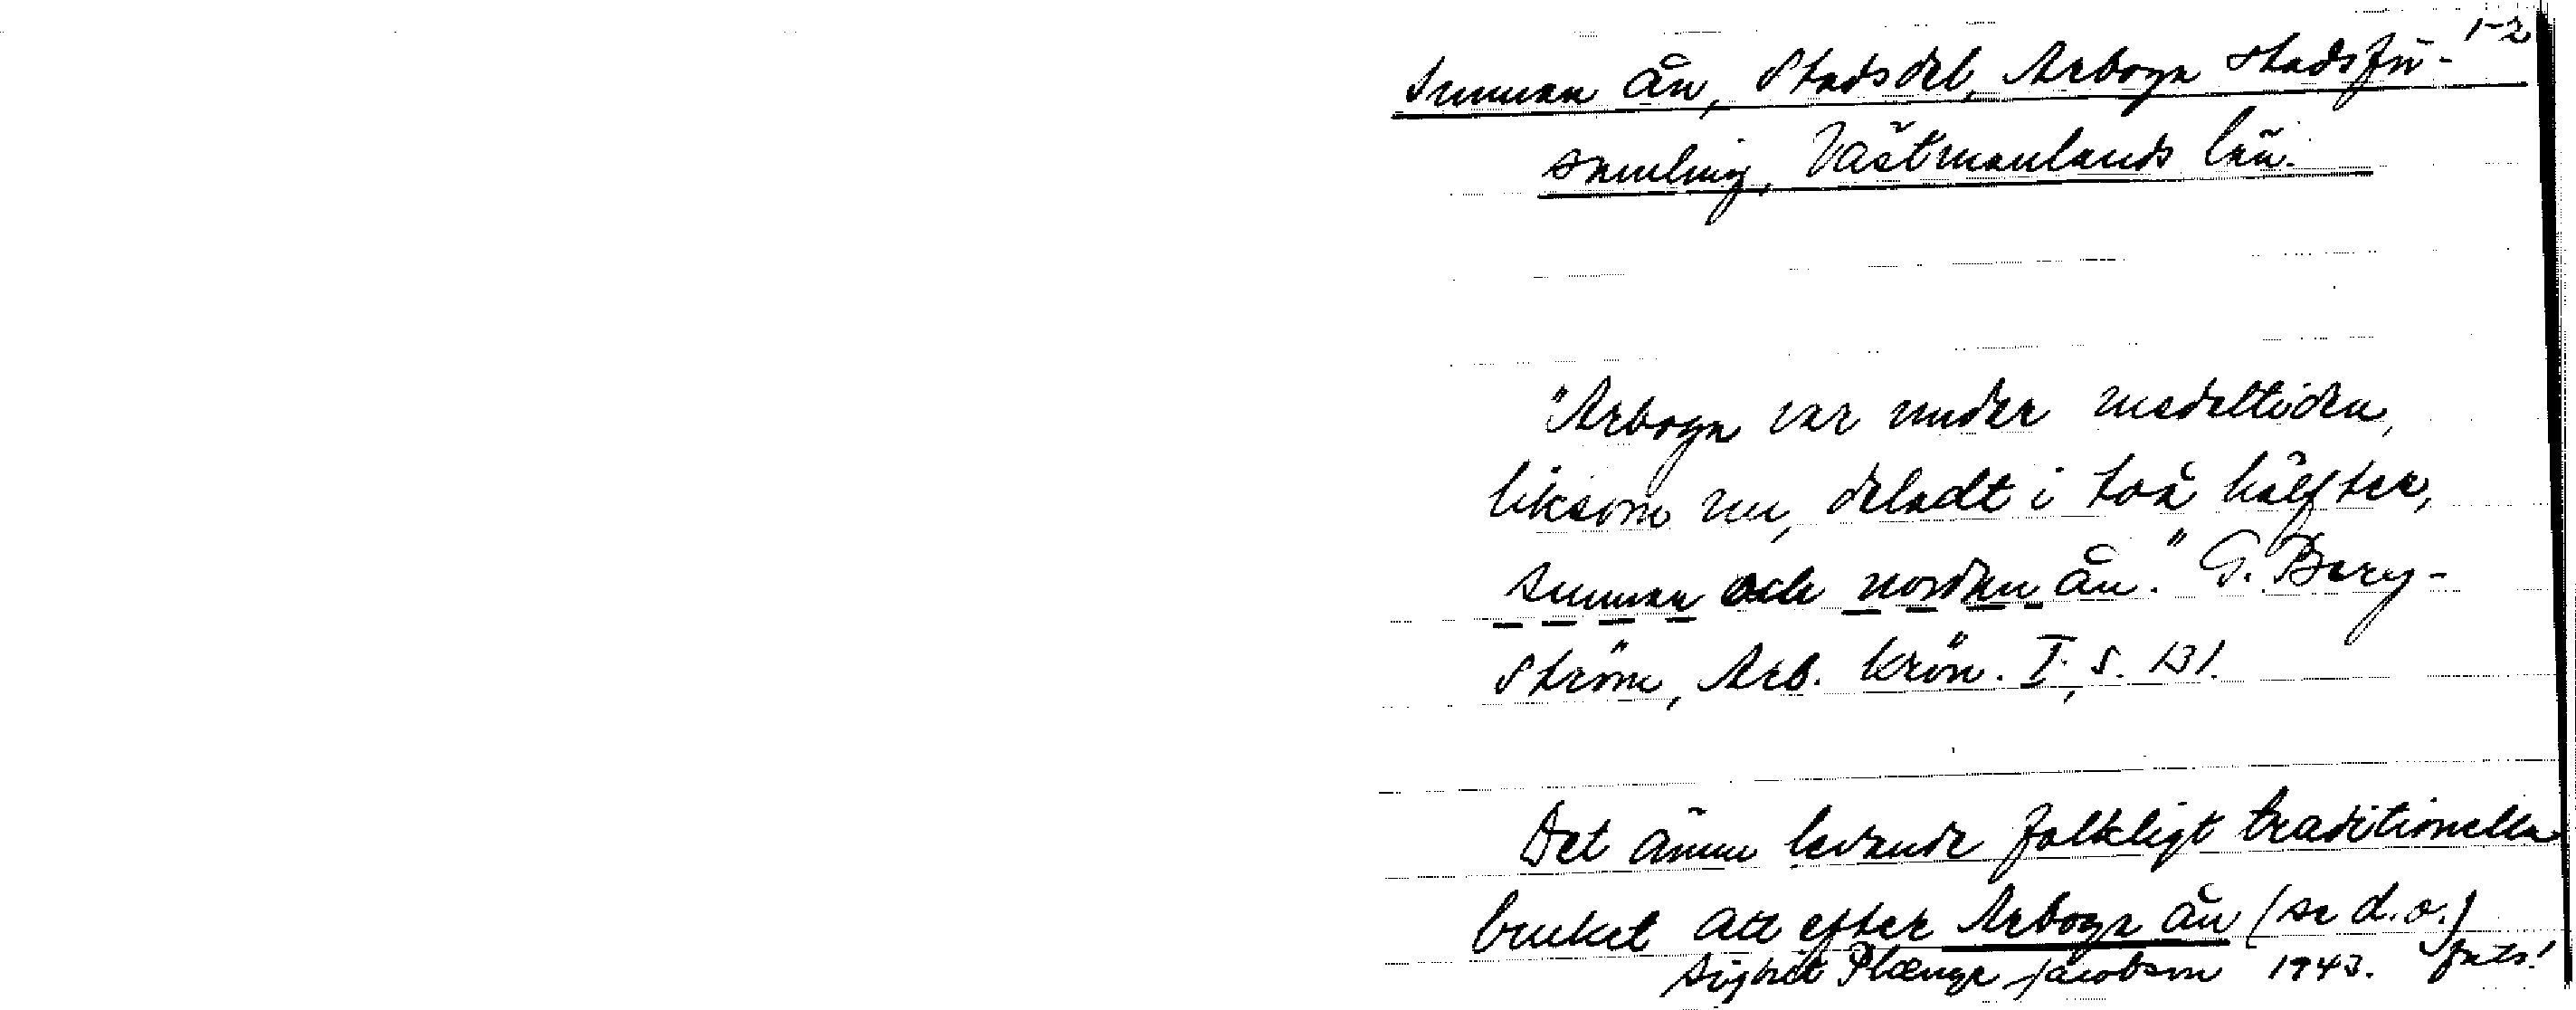 1-2
Sunnan ån, Stadsdel, Arboga stadsför-
samling, Västmanlands län.
"Arboga var under medeltiden,
liksom nu, deladt i två hälfter,
sunnan och nordan ån." G. Berg-
ström, Arb. krön. I, s. 131.
Det ännu levande folkligt traditionella
bruket att efter Arboga ån (se d.o.)
Sigrid Plænge Jacobson 1943. forts!